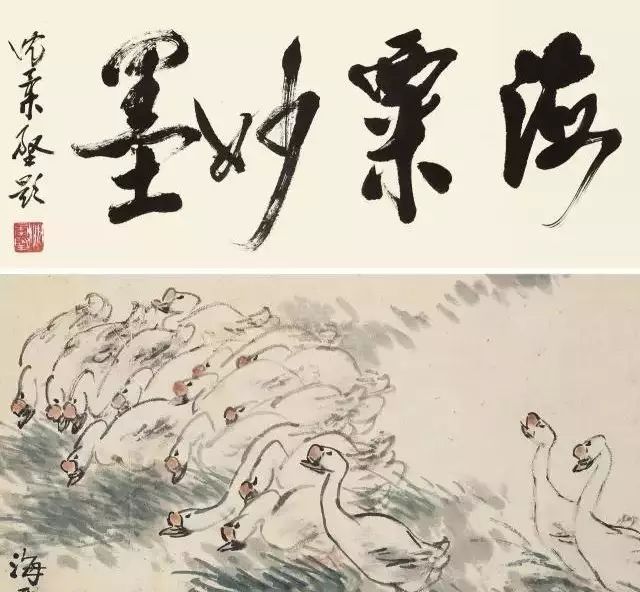 海粟妙墨
沈柔坚题
海